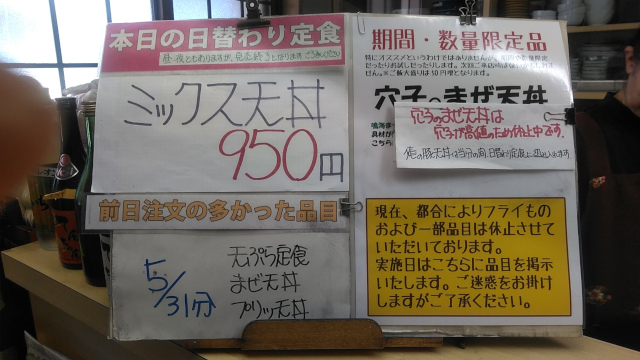 本日の日替わり定食
ミックス天丼
950円
前日注文の多かった品目
5/31分
天ぷら定食
まぜ天丼
プリッツ天丼
期間・数量限定品
特にオススメというわけではありませんが、期間や数量限定
だったりお試しだったりします。
穴子のまぜ天丼
穴子のまぜ天丼は
穴子が高値のため休止中です。
現在、都合によりフライもの
および一部品目は休止させて
いただいております。
実施日はこちらに品目を掲示
いたします。ご迷惑をお掛け
しますがご了承ください。